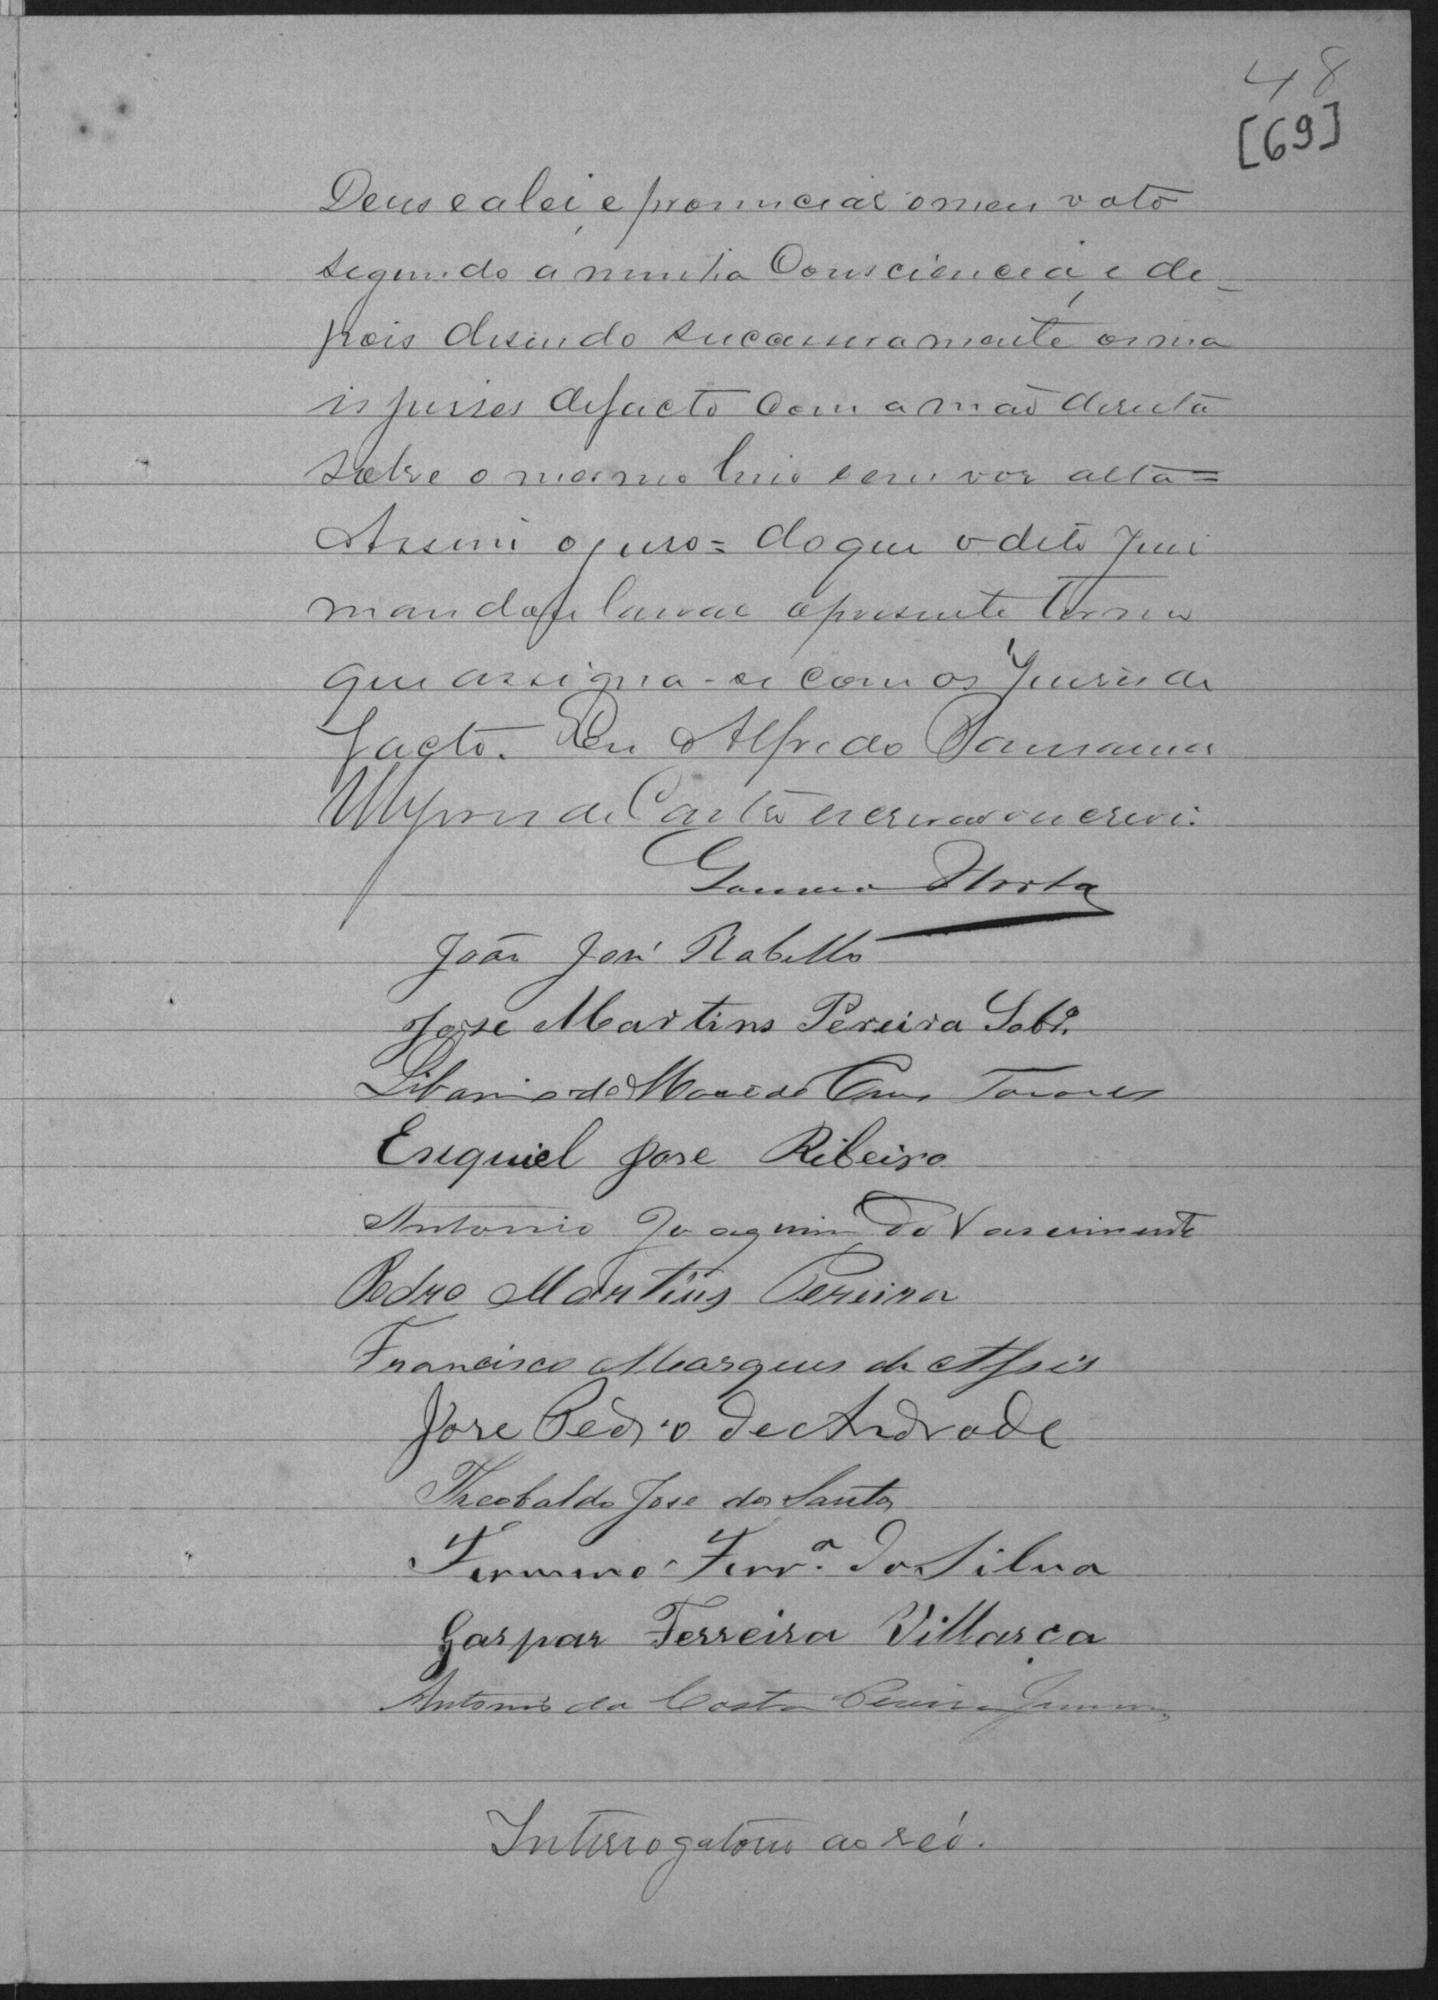 48
[69]
Deus e a lei, e pronunciar o meu voto
segundo a minha Consciencia, e de-
pois disendo sucessivamente os ma
is juises de facto com a mão direita
sobre o mesmo livro e em voz alta =
Assim o juro = do que o dito Juiz
mandou lavrar o presente termo
que assigna-se com os Juises de
facto. Eu Alfredo
de Castro escrivão escrevi.
Horta
João José Rabello
Jose Martins Pereira Sobr.º
Libanio de Tavares
Esequiel Jose Ribeiro
Antonio Joaquim do Nascimento
Pedro Martins Pereira
Francisco Marques de Assis
Jose Pedro de Andrade
Theobaldo Jose dos Santos
Firmino Ferr.ª da Silva
Gaspar Ferreira Villarça
Antonio da Costa Pereira Junior
Interrogatorio ao reo.